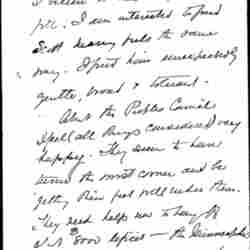 for. I am interested to find
Scott Nearing feels the same
way. I find him unexpectedly
gentle, broad & tolerant.
About the Peoples Council
I feel all things considered very
happy. They seem to have
turned the worst corner and be
getting their feet well under them.
They need helps now to
8000 copies – the Minneapolis